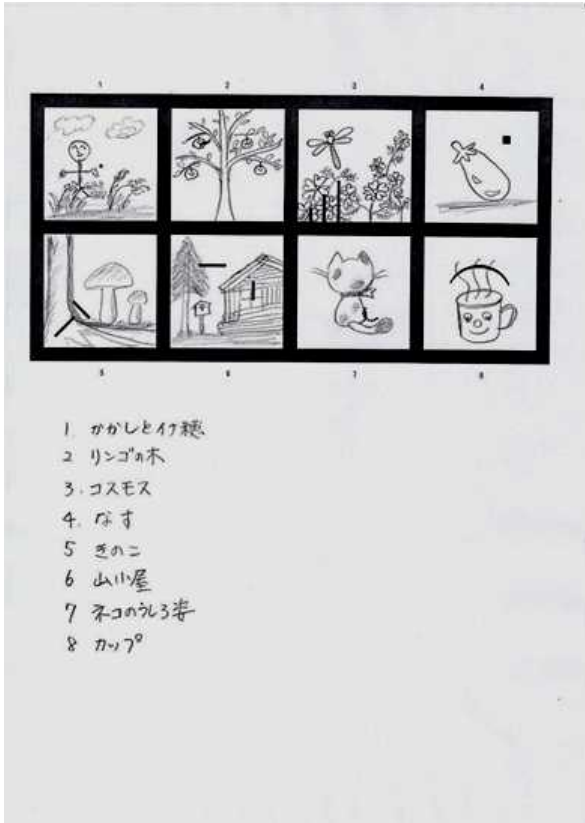 1 2 3 4
5 6 7 8
1. かかしとイナ穂
2 リンゴの木
3. コスモス
4. なす
5 きのこ
6 山小屋
7 ネコのうしろ姿
8 カップ